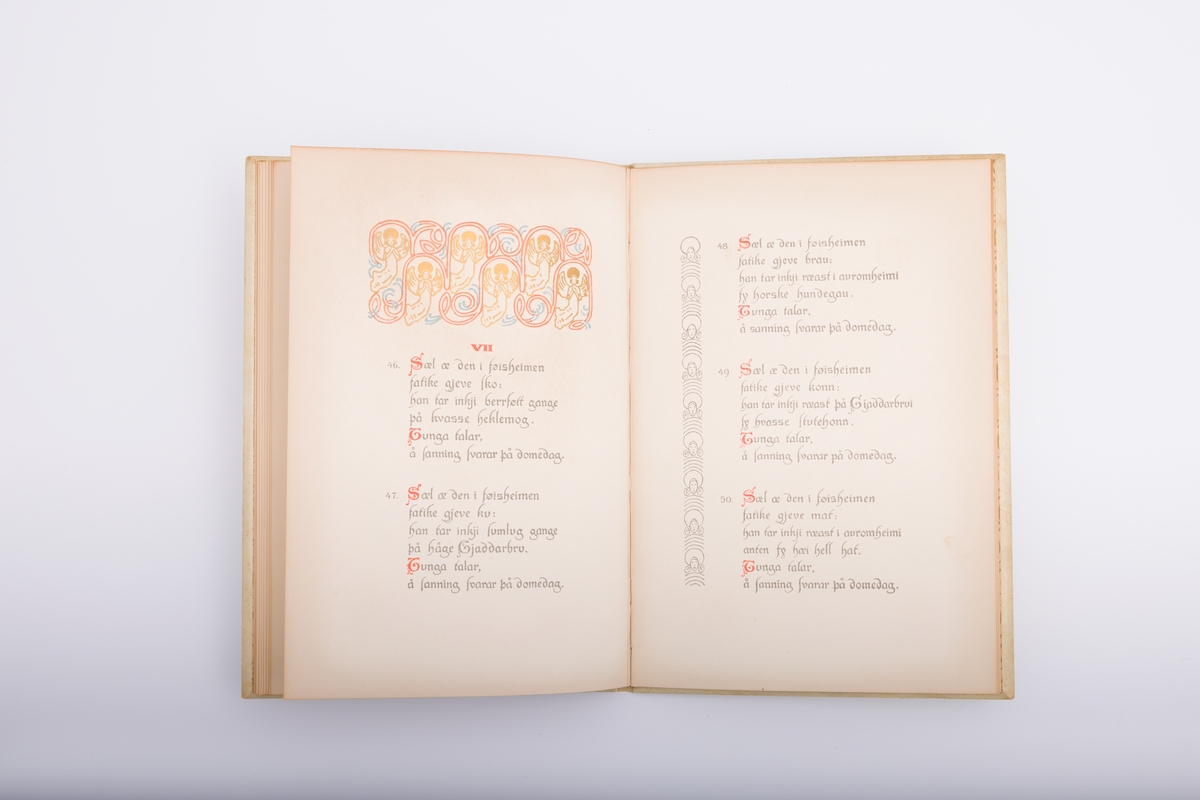 VII
46. Sæl æ den i føisheimen
fatike gjeve sko:
han tar inkji berrføtt gange
på kvasse heklemog.
Tunga talar,
å sanning svarar på domedag.
47. Sæl æ den i føisheimen
fatike gjeve ku:
han tar inkji sumlug gange
på håge Gjaddarbru.
Tunga talar,
å sanning svarar på domedag.
48. Sæl æ den i føisheimen
fatike gjeve brau:
han tar inkji ræast i auromheimi
fy horske hundegau.
Tunga talar,
å sanning svarar på domedag.
49. Sæl æ den i føisheimen
fatike gjeve konn:
han tar inkji ræast på Gjaddarbrui
fy hvasse stutehonn.
Tunga talar,
å sanning svarar på domedag.
50. Sæl æ den i føisheimen
fatike gjeve mat:
han tar inkji ræast i auromheimi
anten fy hæi hell hat.
Tunga talar,
å sanning svarar på domedag.